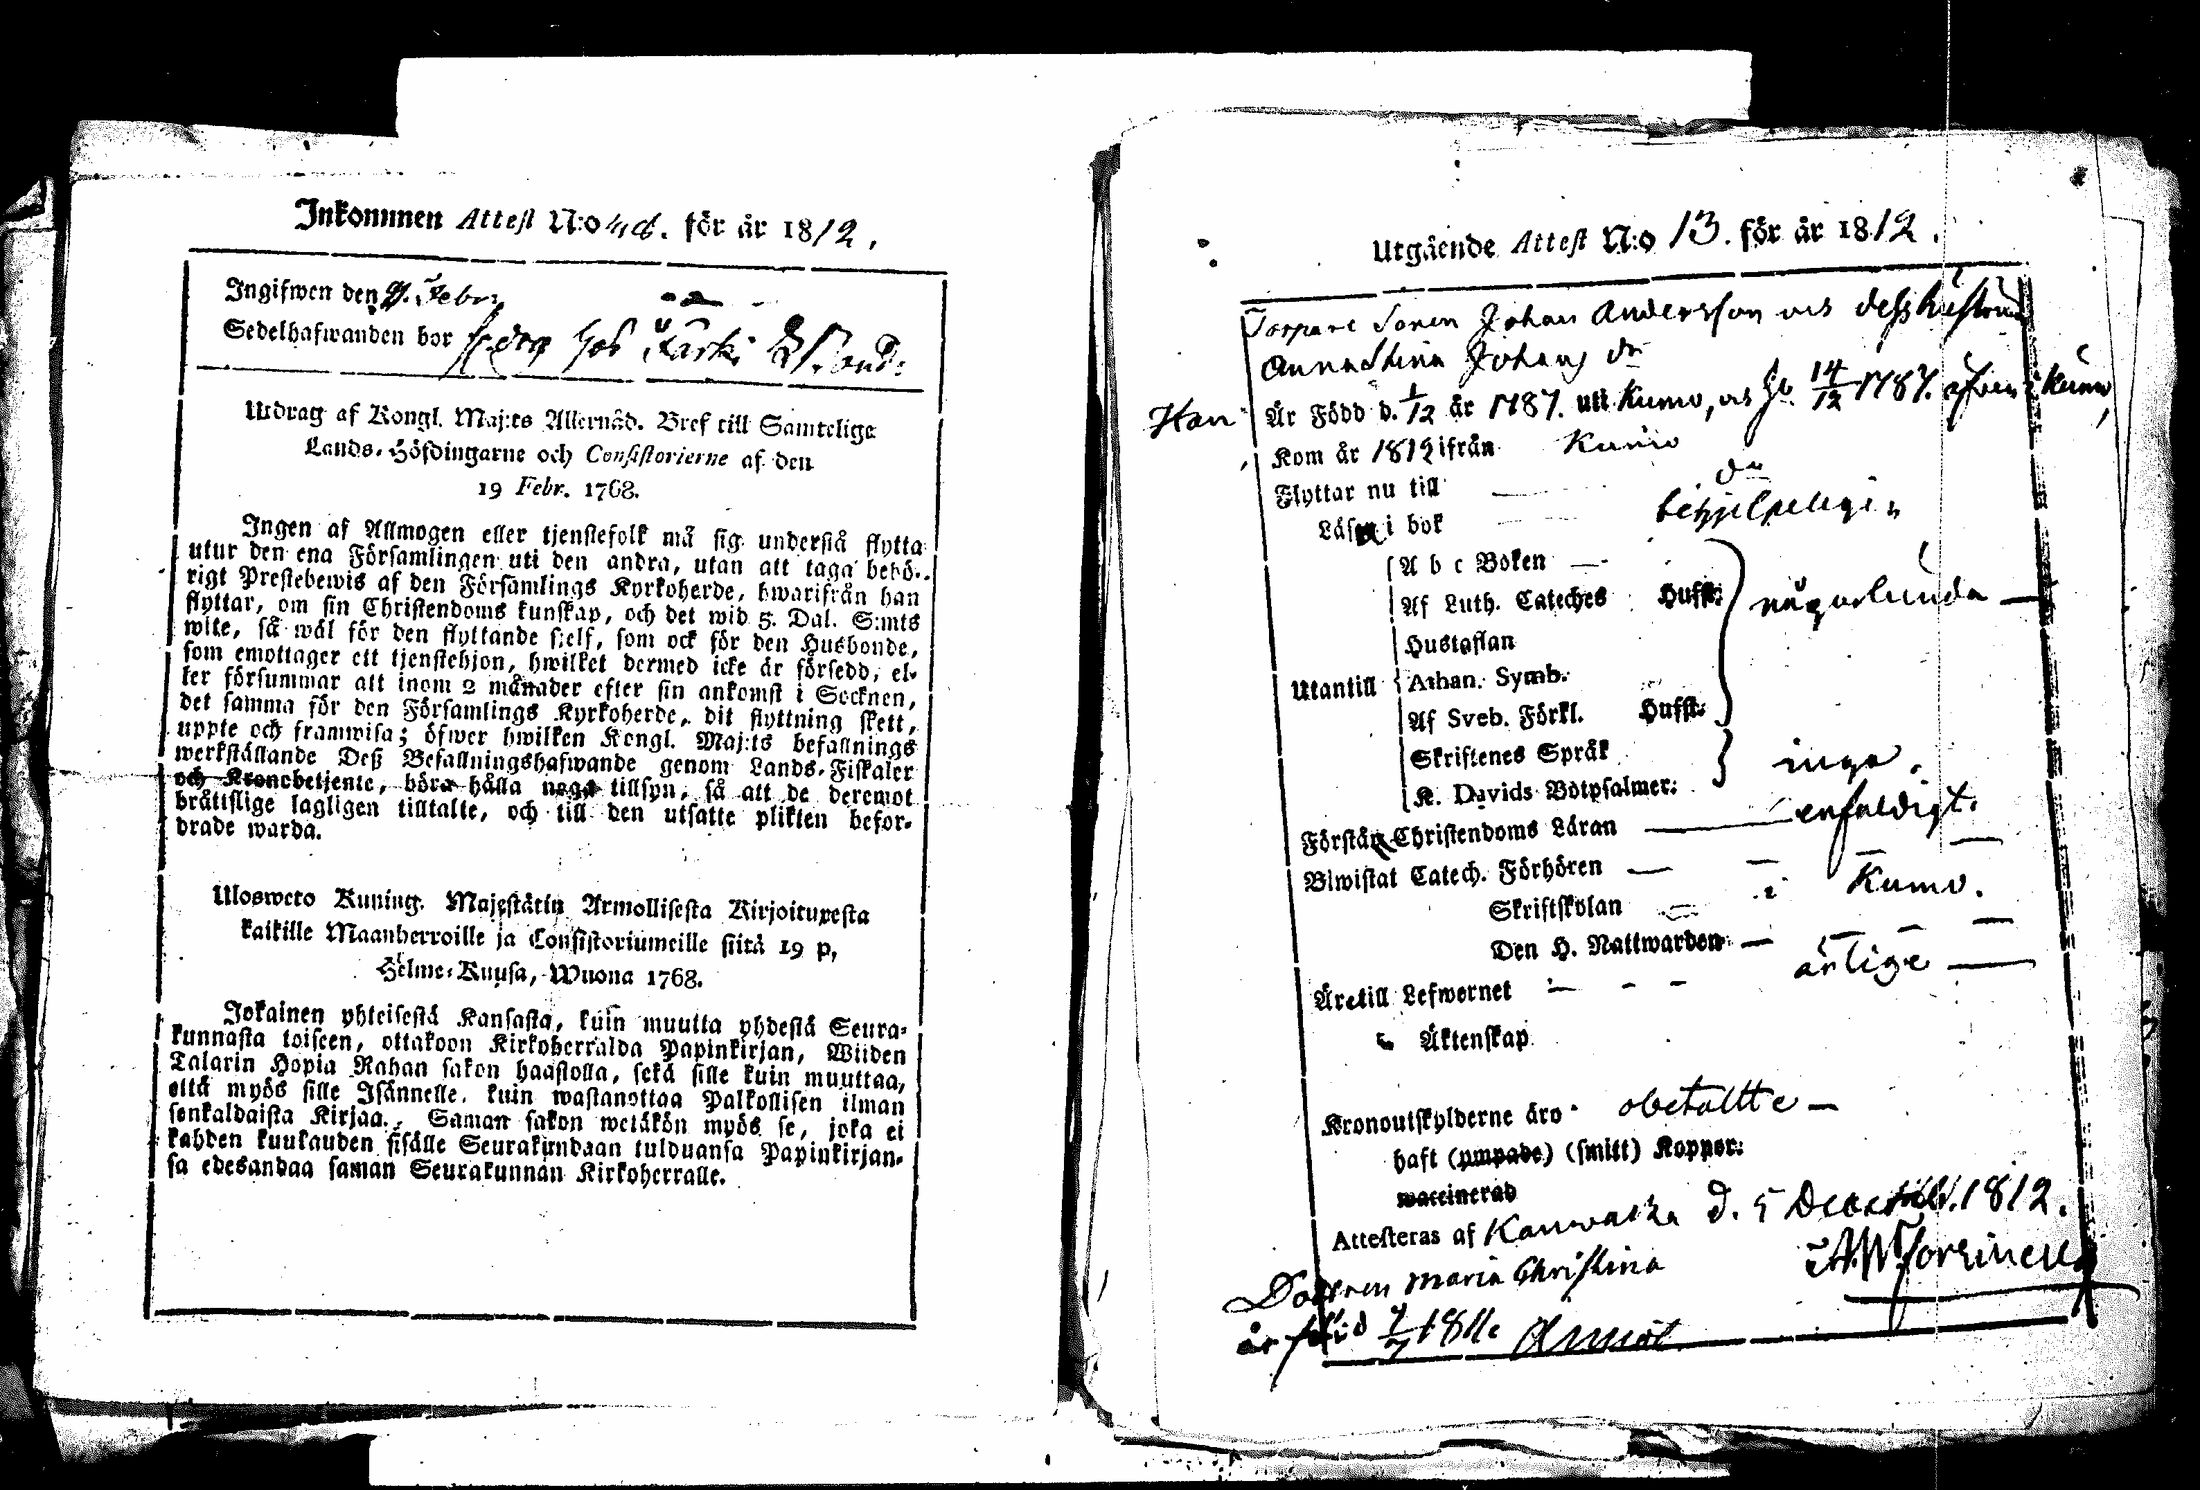 Inkommen Attest N:o för år 1812.
Ingifwen den 9. Febr.
Sedelhafwanden bor hos
Utdrag af Kongl. Maj:ts Allernåd. Bref till Samtelige
Lands-Höfdingarne och Consistorierne af den
19 Febr. 1768.
Ingen af Allmogen eller tjenstefolk må sig understå flytta
utur den ena Församlingen uti den andra, utan att taga behö-
rigt Prestebewis af den Församlings Kyrkoherde, hwarifrån han
flyttar, om sin Christendoms kunskap, och det wid 5. Dal. S:mts
wite, så wäl för den flyttande sjelf, som ock för den Husbonde,
som emottager ett tjenstehjon, hwilket dermed icke är försedd, el-
ler försummar att inom 2 månader efter sin ankomst i Socknen,
det samma för den Församlings Kyrkoherde, dit flyttning skett,
uppte och framwisa; öfwer hwilken Kongl. Maj:ts befallnings
werkställande Deß Befallningshafwande genom Lands-Fiskaler
och Kronobetjente, böra hålla noga tillsyn, så att de deremot
bråtislige lagligen tilltalte, och till den utsatte plikten befor-
drade warda.
Ulosweto Kuning. Majestätin Armollisesta Kirjoituxesta
kaikille Maanherroille ja Consistoriumeille siitä 19 p,
Helme-Kuusa, Wuona 1768.
Jokainen yhteisestä Kansasta, kuin muutta yhdestä Seura-
kunnasta toiseen, ottakoon Kirkoherralda Papinkirjan, Wiiden
Talarin Hopia Rahan sakon haastolla, sekä sille kuin muuttaa,
että myös sille Isännelle, kuin wastanottaa Palkollisen ilman
senkaldaista Kirjaa. Saman sakon wetäkön myös se, joka ei
kahden kuukauden sisälle Seurakundaan tulduansa Papinkirjan-
sa edesandaa saman Seurakunnan Kirkoherralle.
Utgående Attest N:o 13. för år 1812.
Torpare Sonen Johan Andersson och dess hustru
Anna Stina Johans dr
Han Är Född d. 1/12 år 1787. uti Kumo, och 14/12 1787. äfven i Kumo,
Kom år 1812 ifrån Kumo
Flyttar nu till do
Läsa i bok behjelpeligen
A b c Boken
Af Luth. Cateches Hufst.
någorlunda
Hustaflan
Utantill
Athan. Symb.
Af Sveb. Förkl. Hufst.
Skriftenes Språk
inga.
K. Davids Botpsalmer.
Förstån Christendoms Läran enfaldigt.
Biwistat Catech. Förhören
Skriftskolan i Kumo.
Den H. Nattwarden
Äre till Lefwernet ärlige
Äktenskap
Kronoutskylderne äro obetallte
haft (ympade) (smitt) Koppor.
waccinerad
Attesteras af d. 5 Decemb. 1812.
Dottren Maria Christina
är född 1811